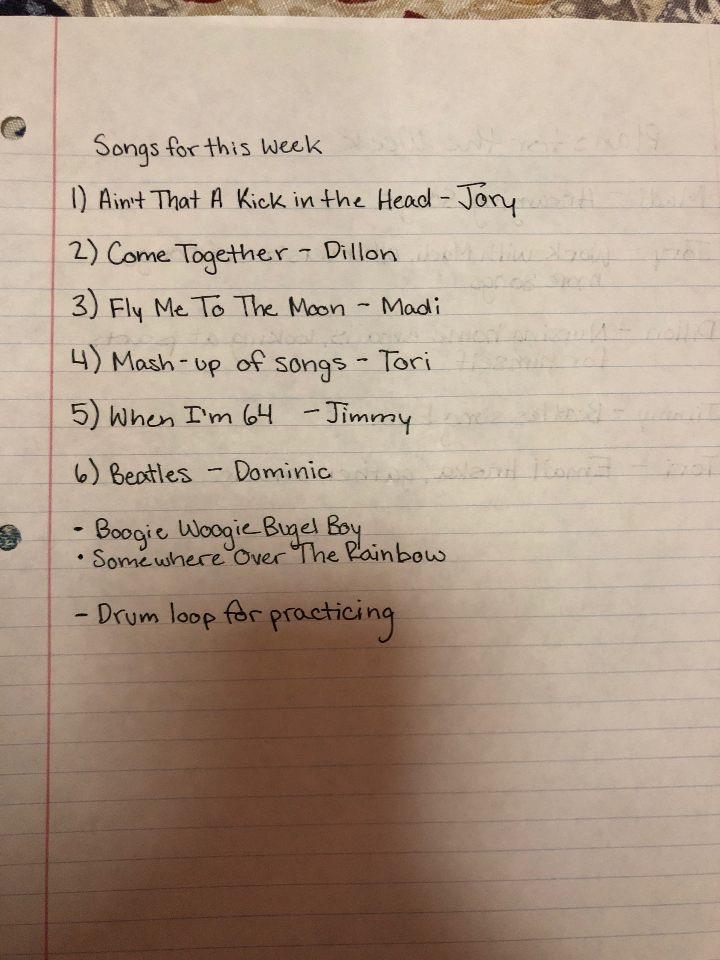 Songs for this week
1) Ain't That A Kick in the Head - Jory
2) Come Together - Dillon
3) Fly Me To The Moon - Madi
4) Mash-up of songs - Tori
5) When I'm 64 - Jimmy
6) Beatles - Dominic
- Boogie Woogie Bugel Boy
• Somewhere Over The Rainbow
- Drum loop for practicing